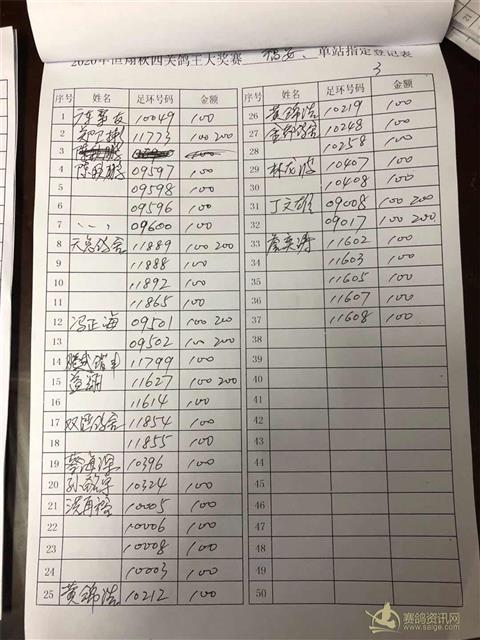 2020年恒翔秋四关鸽王大奖赛 单站指定登记表
3
序号 姓名 足环号码 金额
1 10049 100
2 11773 100 200
3
4 陈 鹏 09597 100
5 09598 100
6 09596 100
7 09600 100
8 天总鸽舍 11889 100 200
9 11888 100
10 11892 100
11 11865 100
12 冯正海 09501 100 200
13 09502 100 200
14 11799 100
15 11627 100 200
16 11614 100
17 双 鸽舍 11854 100
18 11855 100
19 蔡海深 10396 100
20 孙 10324 100
21 洗再裕 10005 100
22 10006 100
23 10008 100
24 10003 100
25 黄锦浩 10212 100
序号 姓名 足环号码 金额
26 黄锦浩 10219 100
27 金 鸽舍 10248 100
28 10258 100
29 林 10407 100
30 10408 100
31 丁文雄 09008 100 200
32 09017 100 200
33 11602 100
34 11603 100
35 11605 100
36 11607 100
37 11608 100
38
39
40
41
42
43
44
45
46
47
48
49
50
赛鸽资讯网
www.saige.com